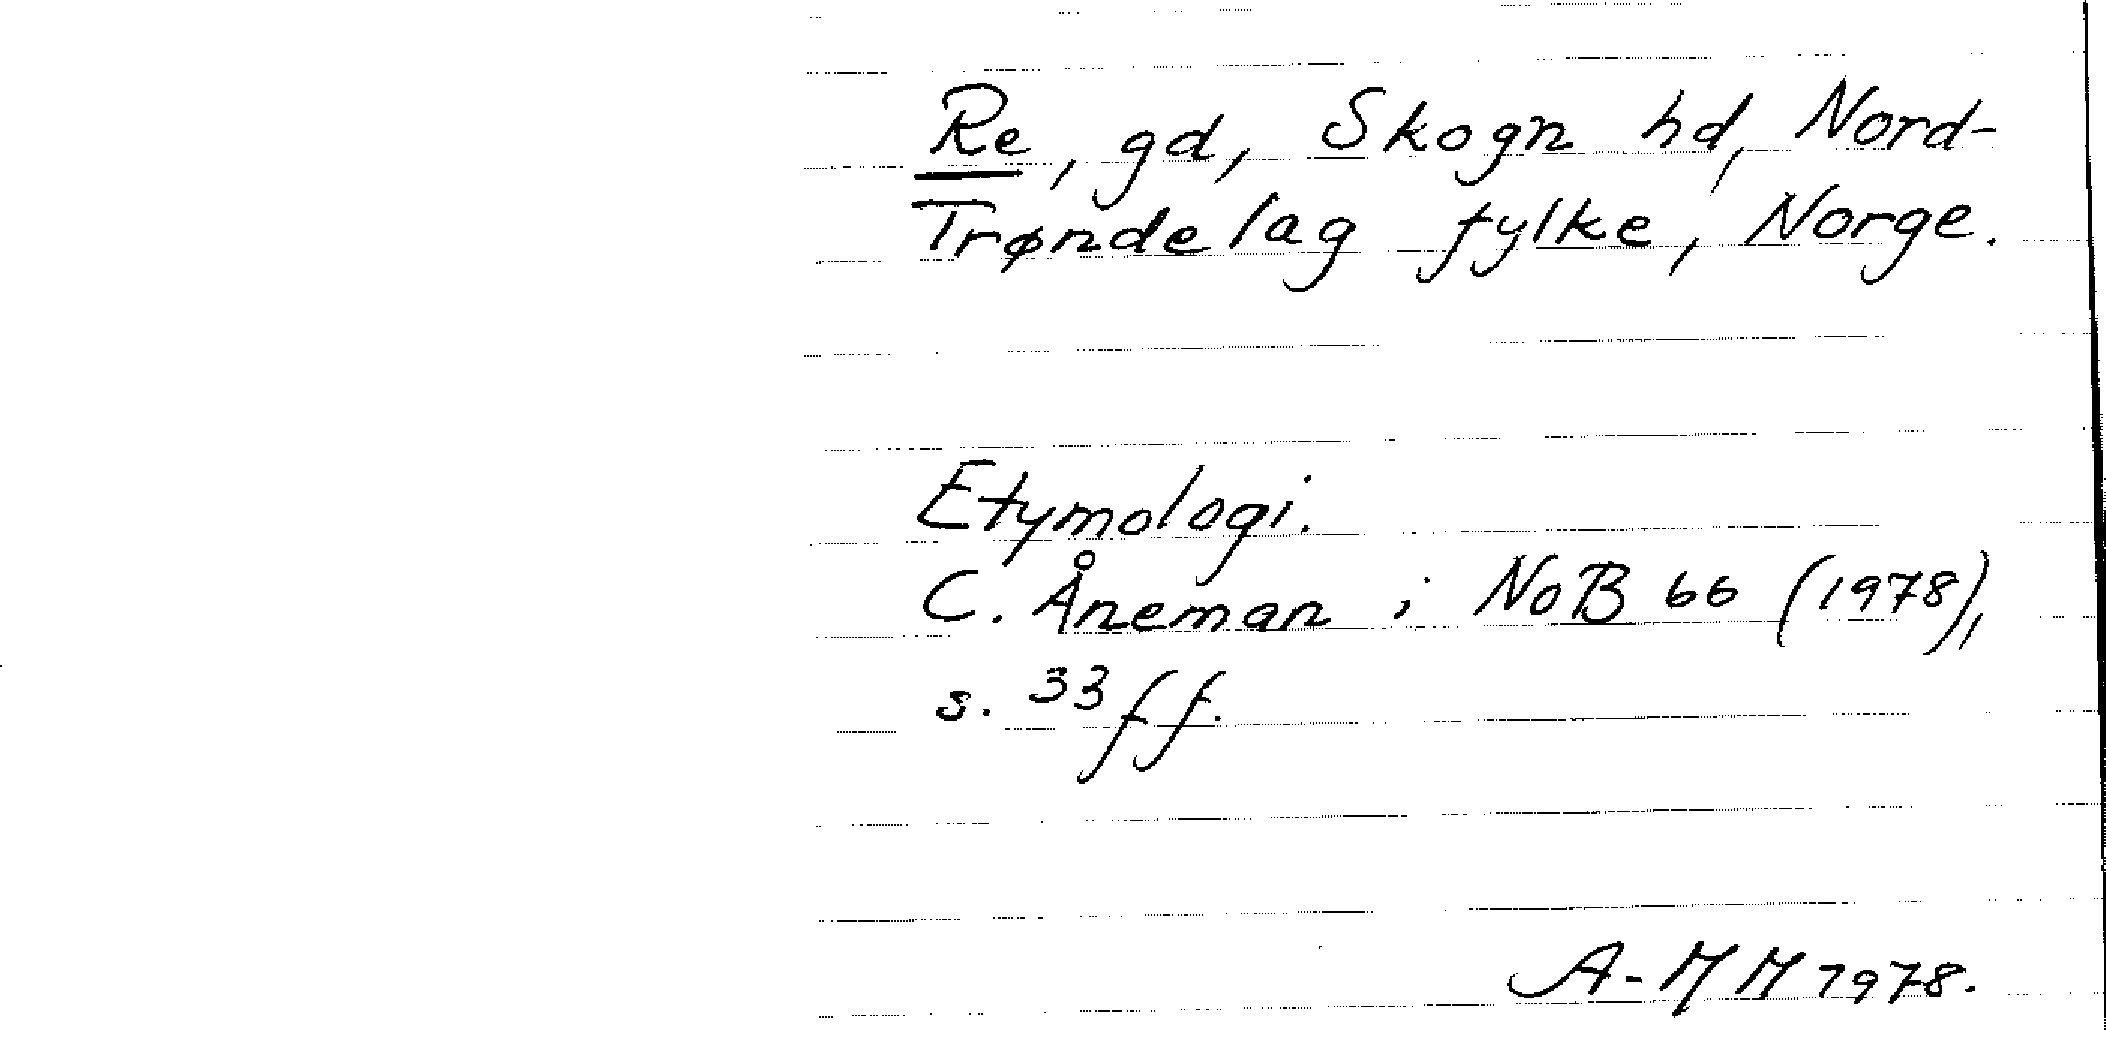 Re, gd, Skogn hd, Nord-
Trøndelag fylke, Norge.
Etymologi.
C. Åneman i NoB 66 (1978),
s. 33 ff.
A-MM 1978.